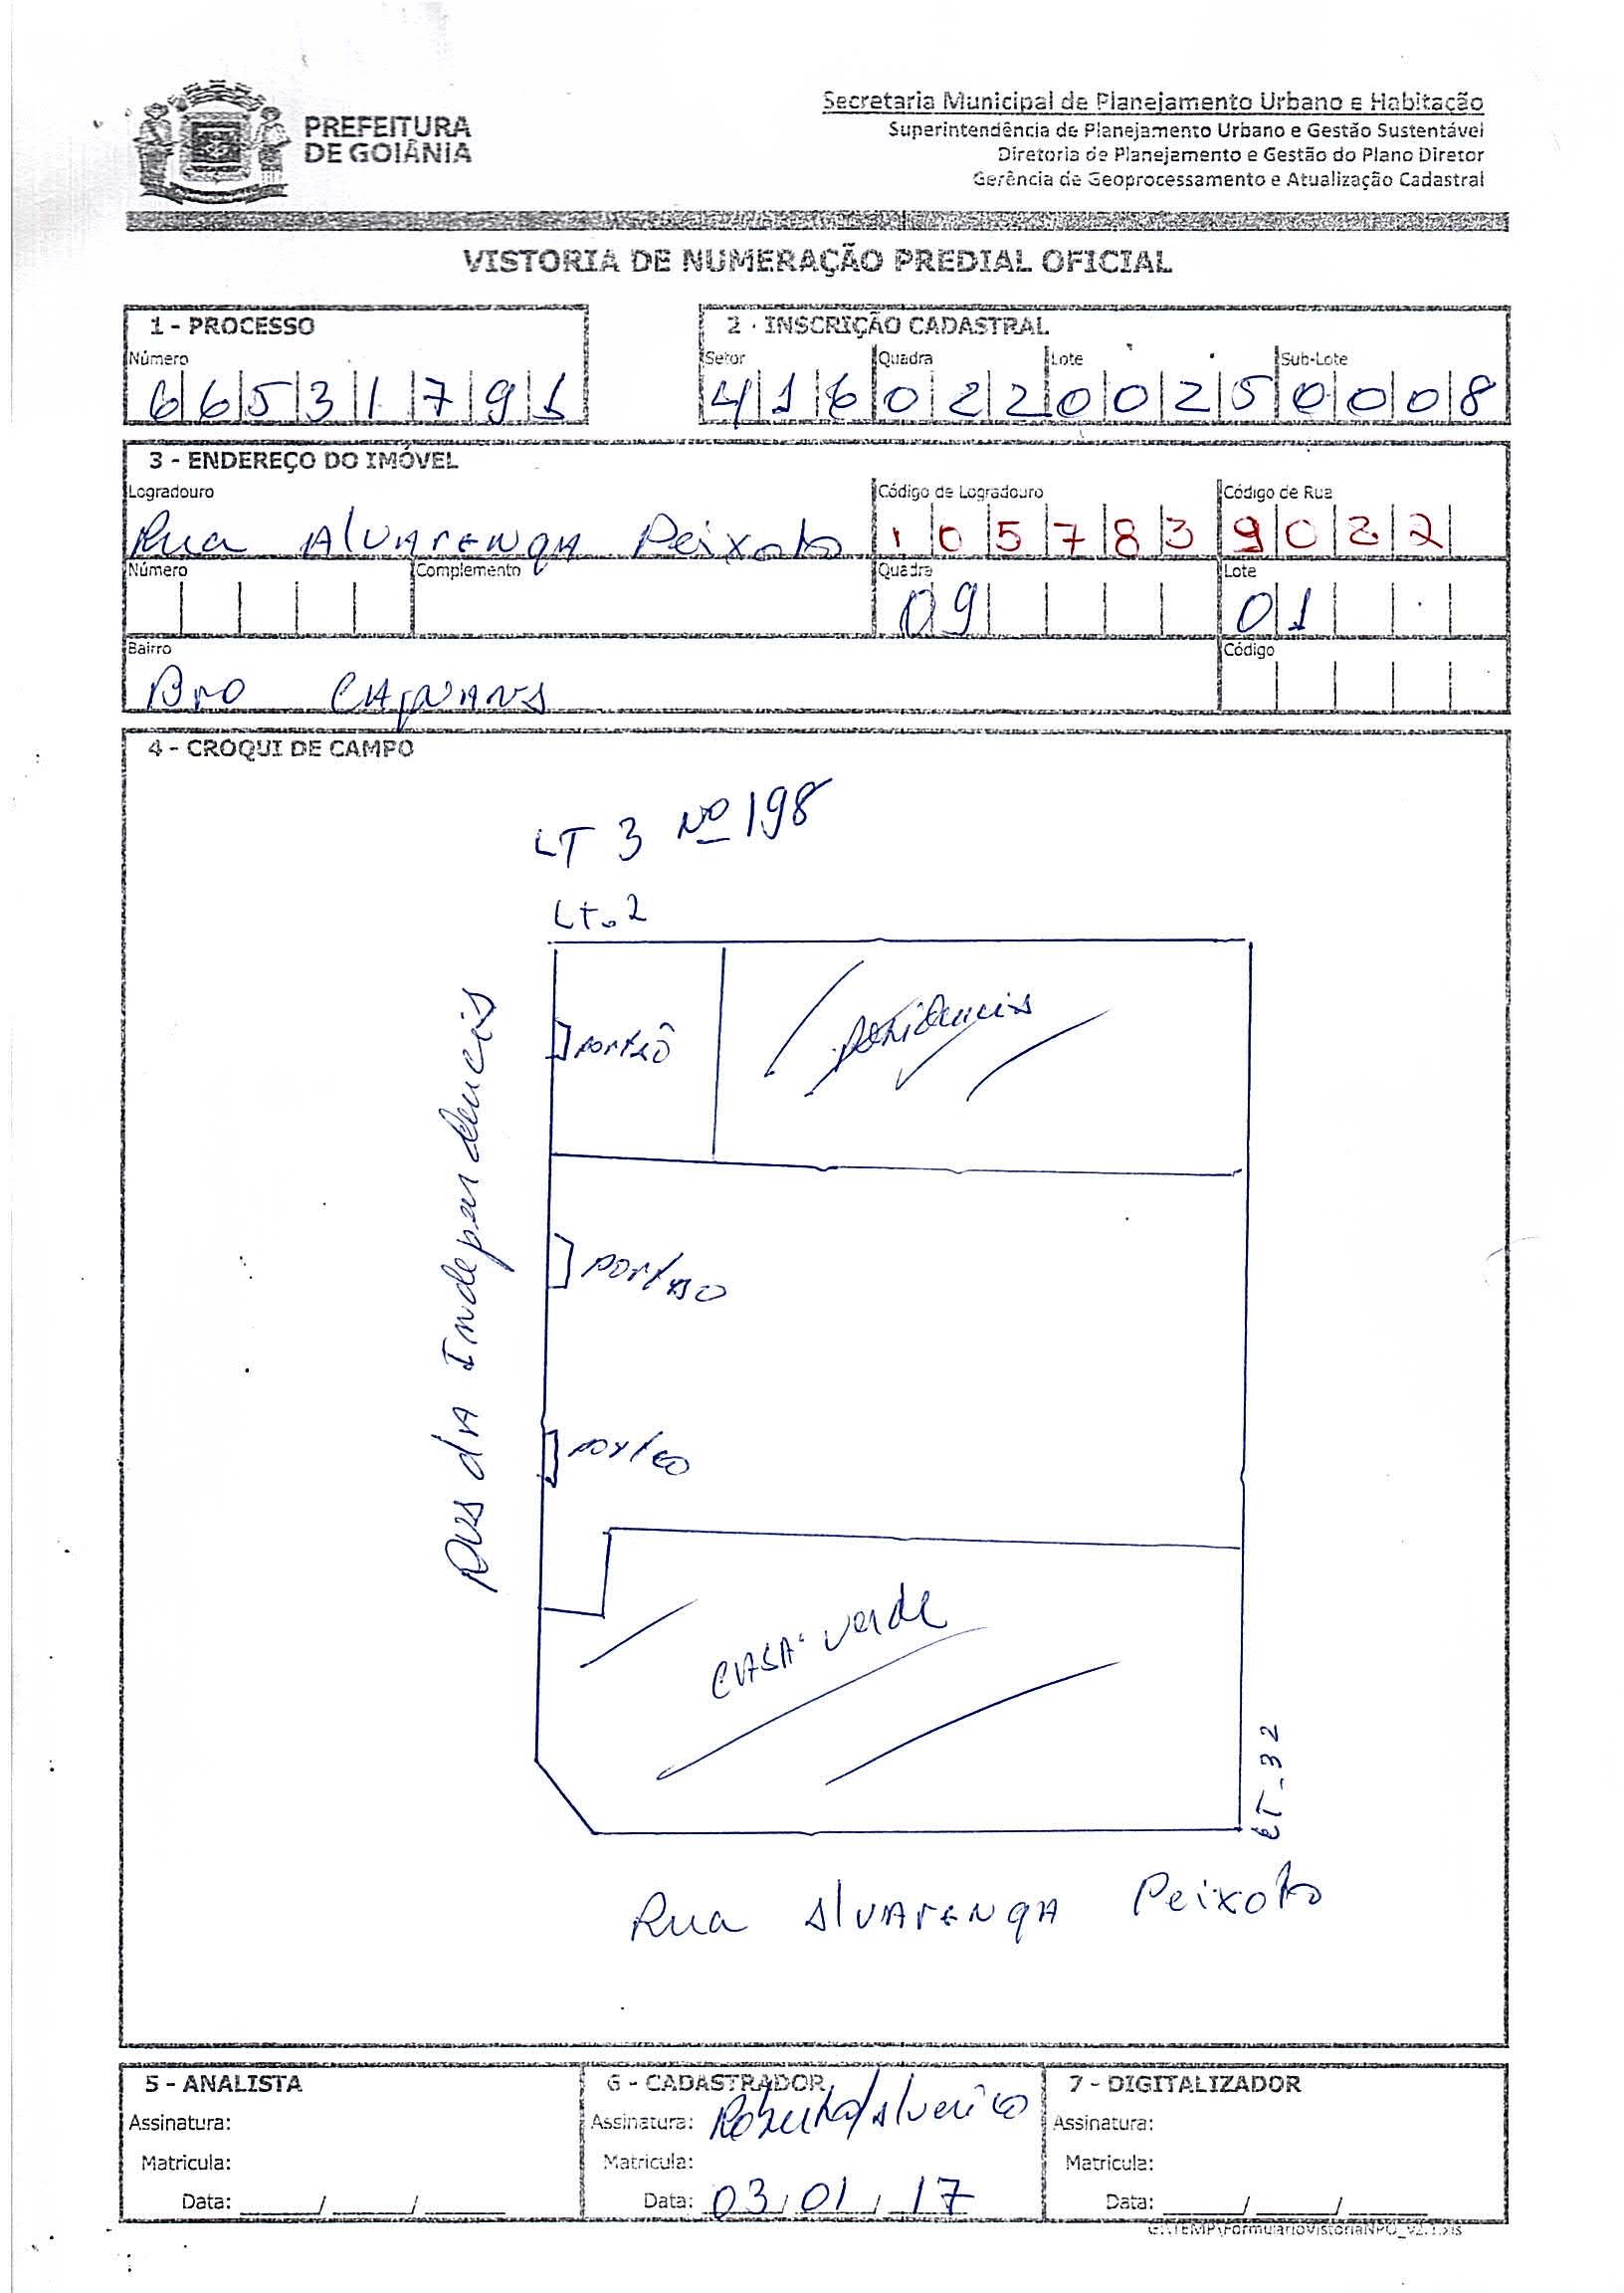 PREFEITURA
DE GOIÂNIA
Secretaria Municipal de Planejamento Urbano e Habitação
Superintendência de Planejamento Urbano e Gestão Sustentável
Diretoria de Planejamento e Gestão do Plano Diretor
Gerência de Geoprocessamento e Atualização Cadastral
VISTORIA DE NUMERAÇÃO PREDIAL OFICIAL
1 - PROCESSO
Número
66531791
2 - INSCRIÇÃO CADASTRAL
Setor Quadra Lote Sub-Lote
416 022 0025 0008
3 - ENDEREÇO DO IMÓVEL
Logradouro Código de Logradouro Código de Rua
Rua Alvarenga Peixoto 105783 9022
Número Complemento Quadra Lote
09 01
Bairro Código
Bro
4 - CROQUI DE CAMPO
LT 3 Nº 198
Lt. 2
portão
Residencia
Rua da Independencia
portão
portão
CASA verde
LT. 32
Rua Alvarenga Peixoto
5 - ANALISTA
Assinatura:
Matricula:
Data: ___/___/___
6 - CADASTRADOR
Assinatura:
Matricula:
Data: 03/01/17
7 - DIGITALIZADOR
Assinatura:
Matricula:
Data: ___/___/___
G:\TEMP\FormularioVistoriaNPO_v2.1.xls